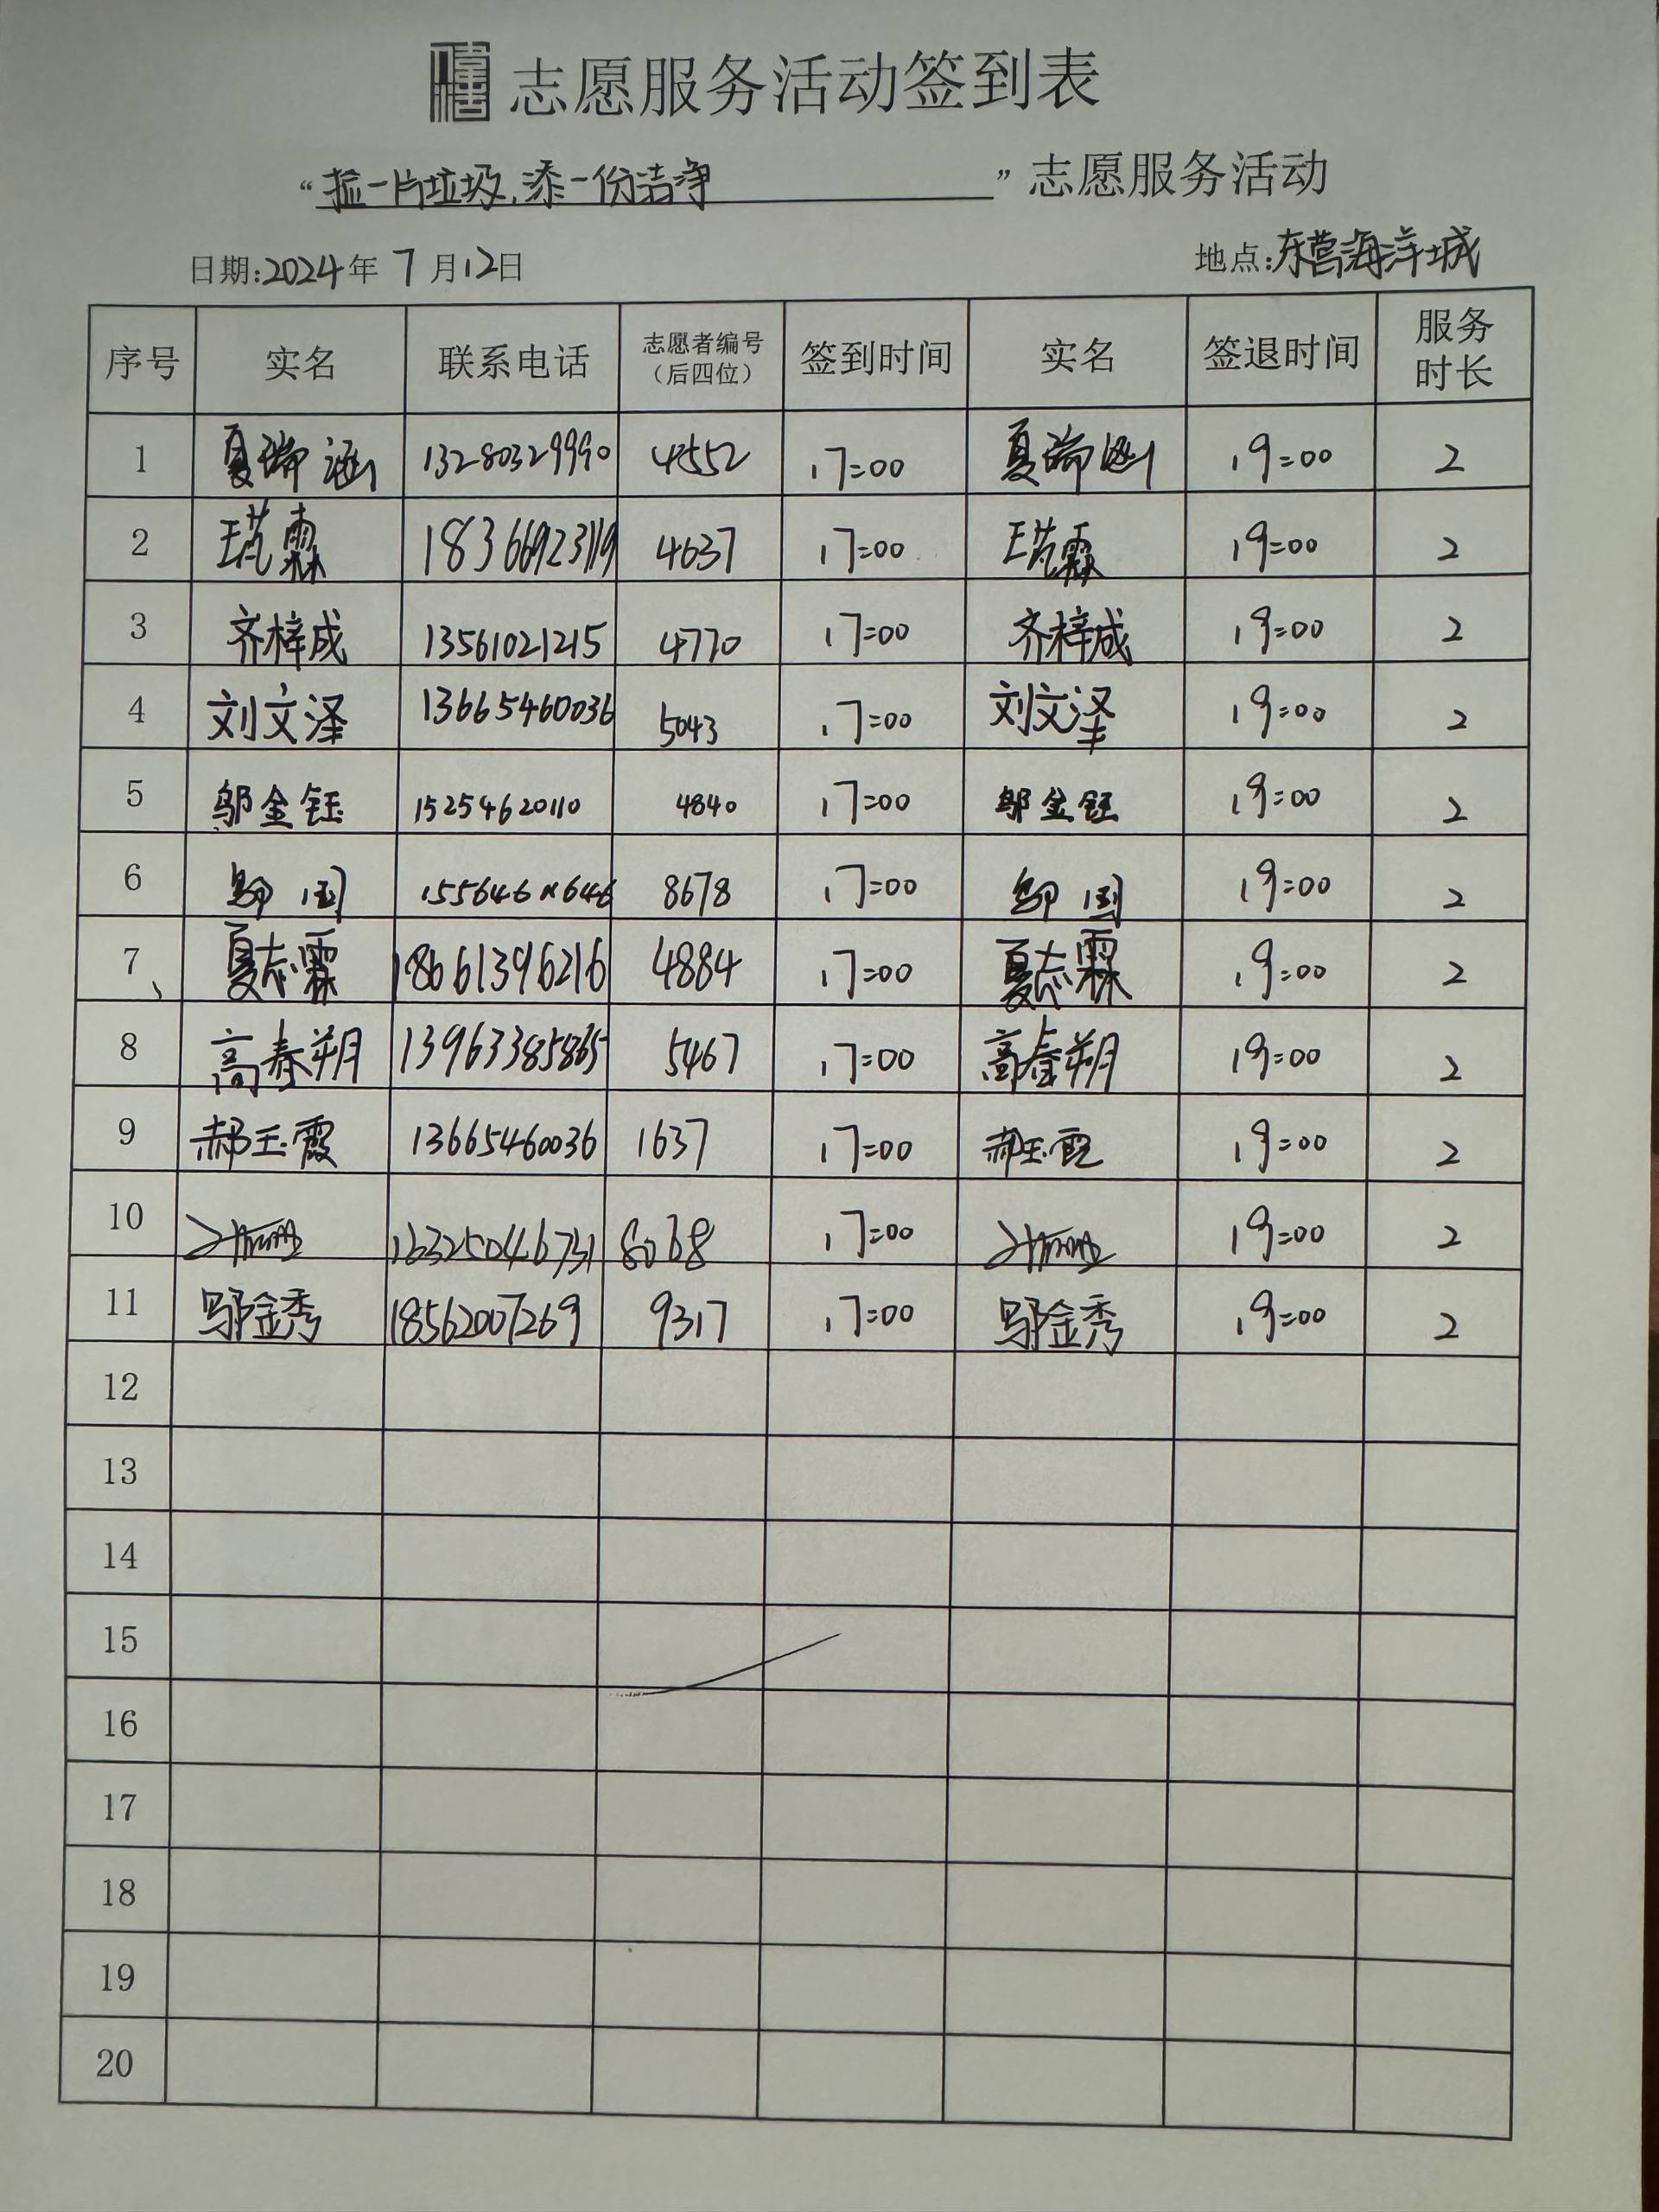 志愿服务活动签到表
“捡一片垃圾,添一份洁净”志愿服务活动
日期:2024年7月12日 地点:东营海洋城
序号 实名 联系电话 志愿者编号(后四位) 签到时间 实名 签退时间 服务时长
1 夏瑞涵 13280329990 4552 17:00 夏瑞涵 19:00 2
2 18366923119 4637 17:00 19:00 2
3 齐梓成 13561021215 4770 17:00 齐梓成 19:00 2
4 刘文泽 13665460036 5043 17:00 刘文泽 19:00 2
5 邬金钰 15254620110 4840 17:00 邬金钰 19:00 2
6 8678 17:00 19:00 2
7 夏志霖 18661396216 4884 17:00 夏志霖 19:00 2
8 高春朔 13963385865 5467 17:00 高春朔 19:00 2
9 郝玉霞 13665460036 1637 17:00 郝玉霞 19:00 2
10 17:00 19:00 2
11 邬金秀 18562007269 9317 17:00 邬金秀 19:00 2
12
13
14
15
16
17
18
19
20